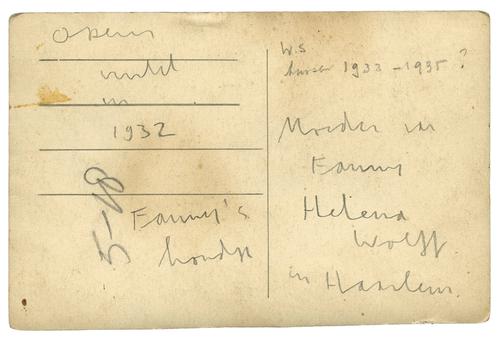 Opem
in
1932
5-18
Fanny's
hondje
W.S
tussen 1933 - 1935 ?
Moeder van
Fanny
Helena
Wolff
in Haarlem.